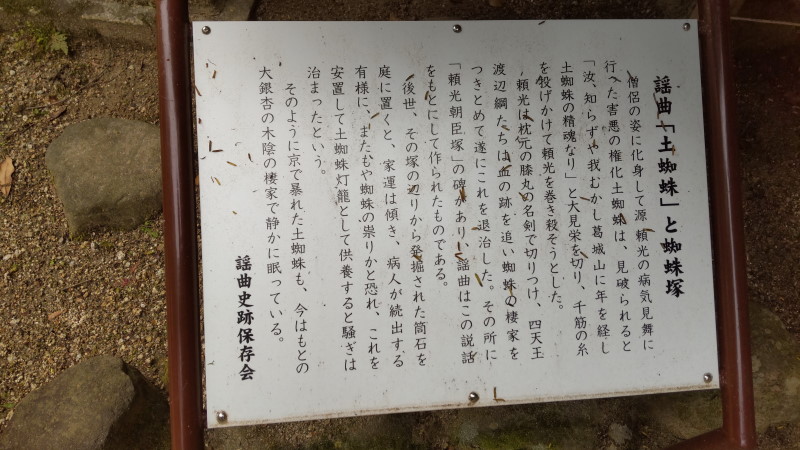 謡曲「土蜘蛛」と蜘蛛塚
僧侶の姿に化身して源頼光の病気見舞に
行った害悪の権化土蜘蛛は、見破られると
「汝、知らずや我むかし葛城山に年を経し
土蜘蛛の精魂なり」と大見栄を切り、千筋の糸
を投げかけて頼光を巻き殺そうとした。
頼光は枕元の膝丸の名剣で切りつけ、四天王
渡辺綱たちは血の跡を追い蜘蛛の棲家を
つきとめて遂にこれを退治した。その所に
「頼光朝臣塚」の碑があり、謡曲はこの説話
をもとにして作られたものである。
後世、その塚の辺りから発掘された筒石を
庭に置くと、家運は傾き、病人が続出する
有様に、またもや蜘蛛の祟りかと恐れ、これを
安置して土蜘蛛灯籠として供養すると騒ぎは
治まったという。
そのように京で暴れた土蜘蛛も、今はもとの
大銀杏の木陰の棲家で静かに眠っている。
謡曲史跡保存会